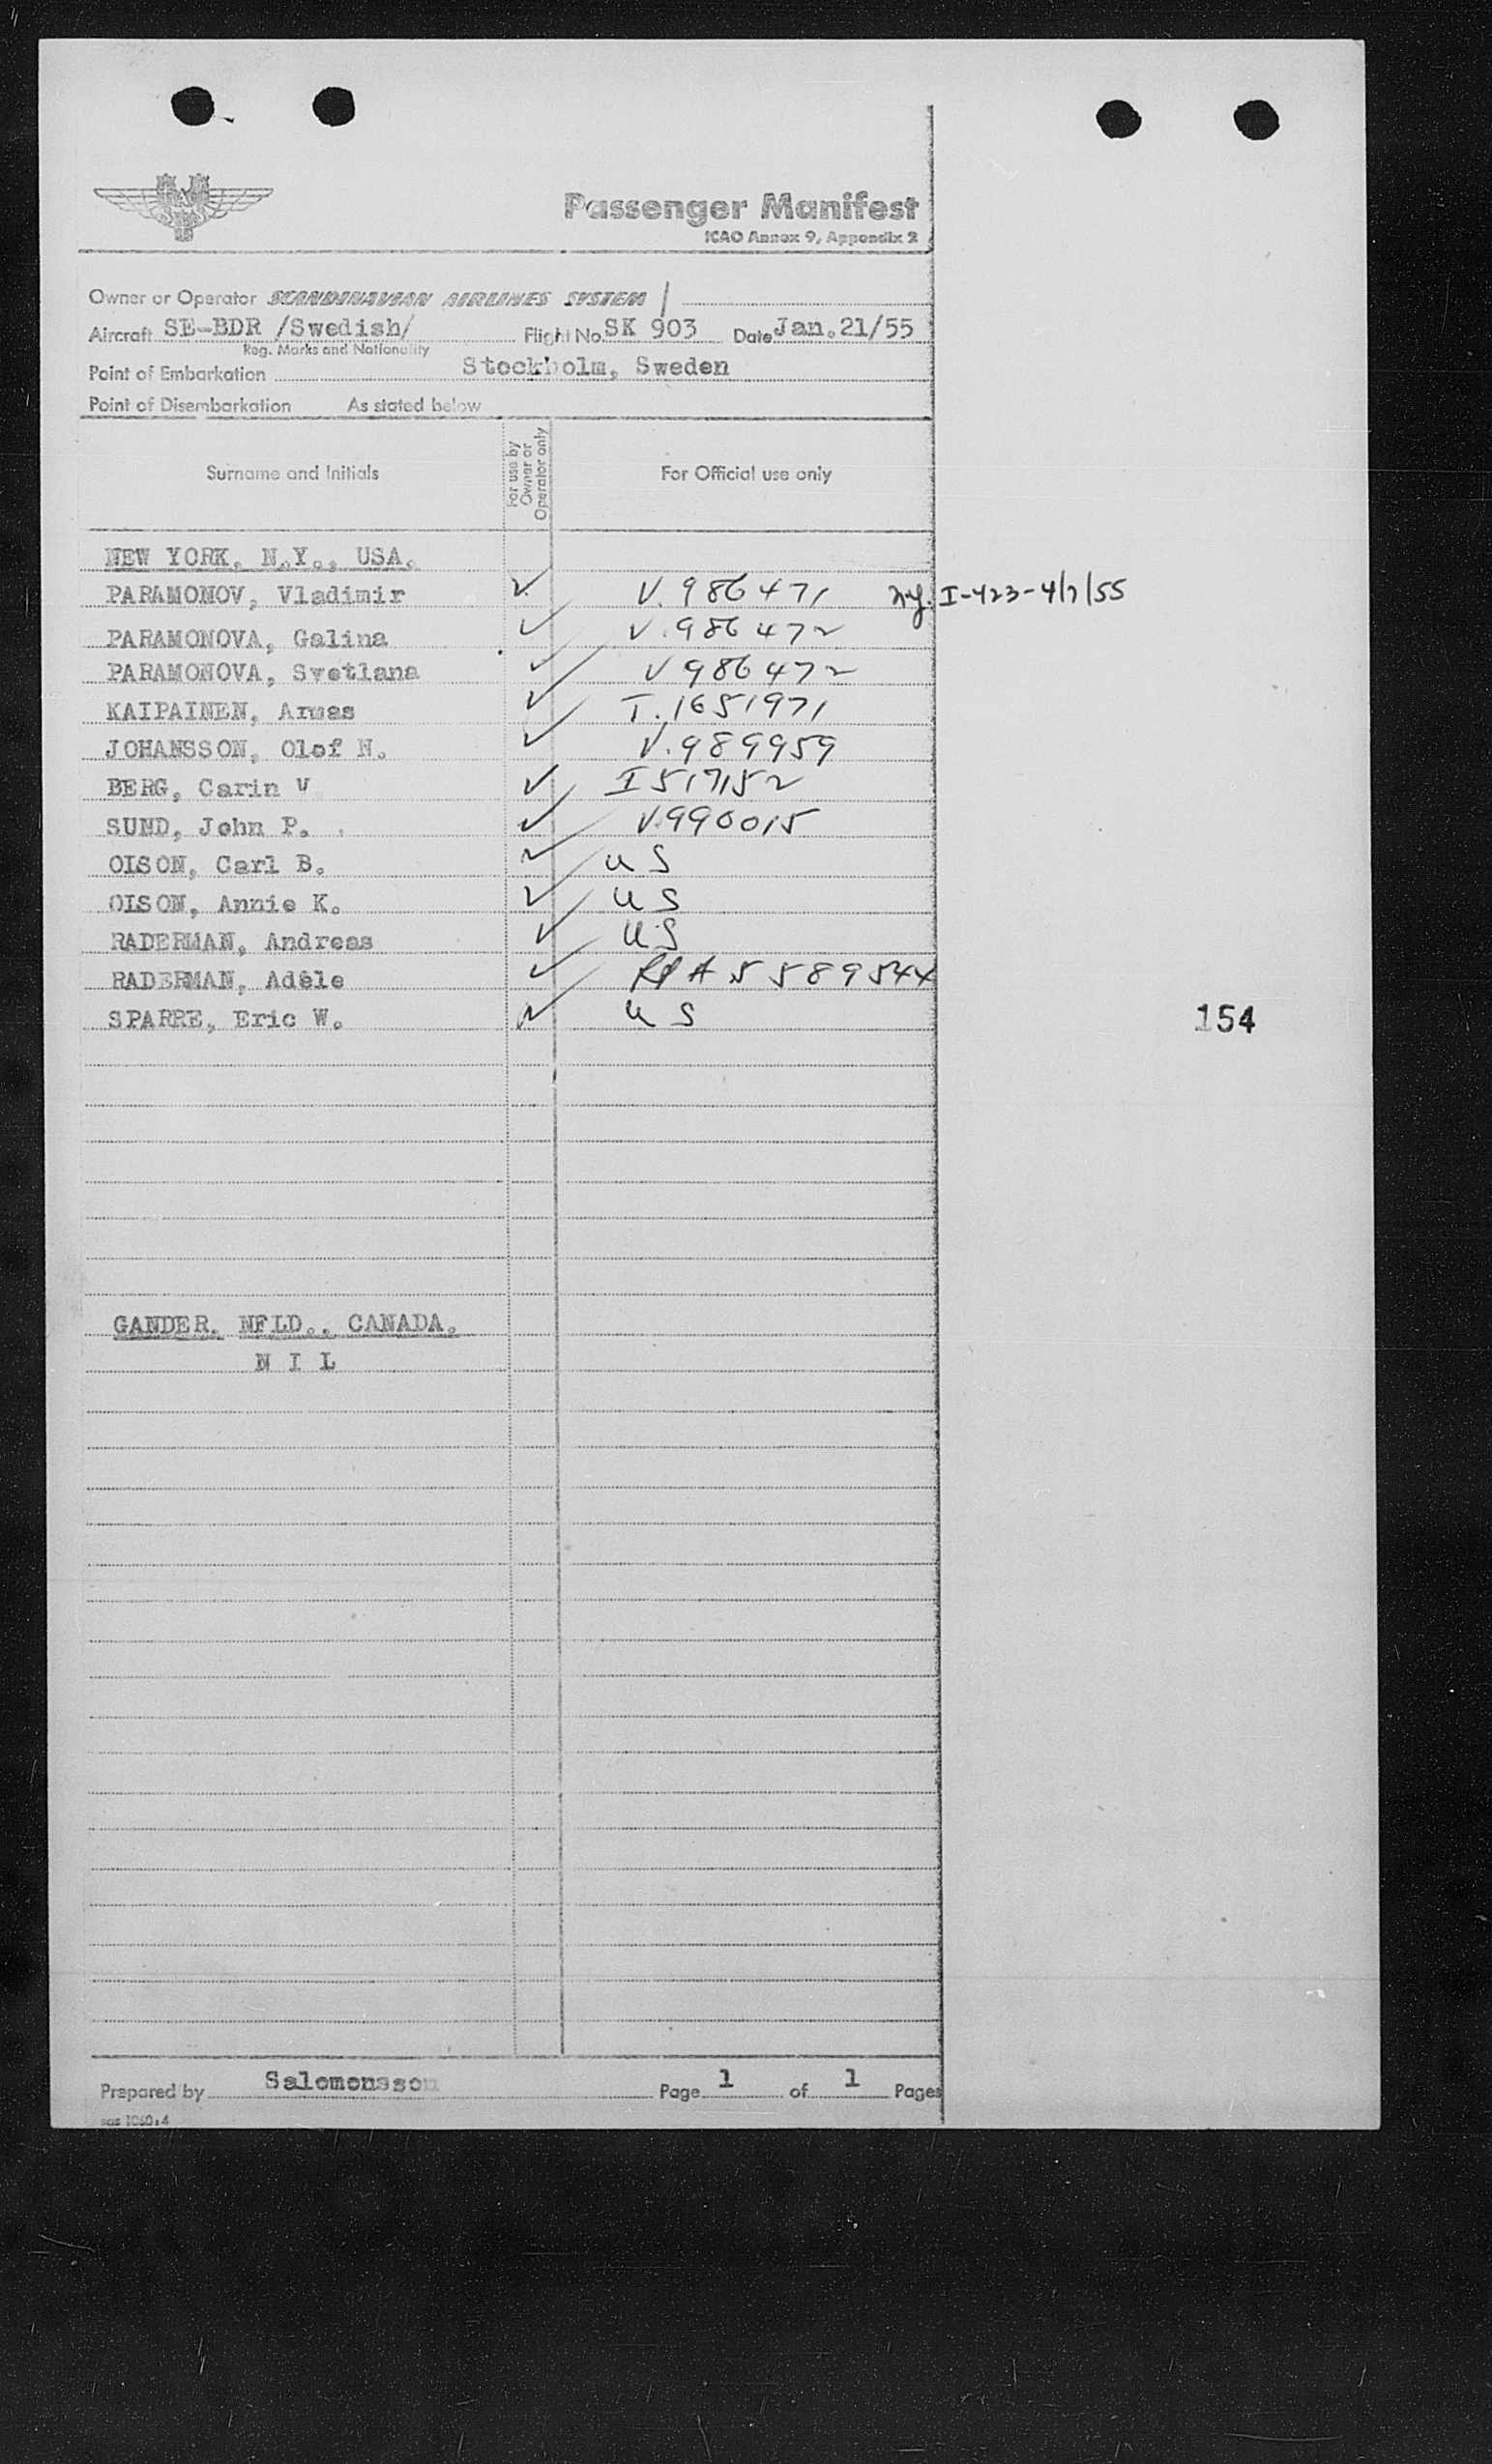 Passenger Manifest
ICAO Annex 9, Appendix 2
Owner or Operator SCANDINAVIAN AIRLINES SYSTEM /
Aircraft SE-BDR /Swedish/ Flight No. SK 903 Date Jan. 21/55
Reg. Marks and Nationality
Point of Embarkation Stockholm, Sweden
Point of Disembarkation As stated below
Surname and Initials For use by Owner or Operator only For Official use only
NEW YORK, N.Y., USA.
PARAMONOV, Vladimir ✓ V. 986471 I-423-4/7/55
PARAMONOVA, Galina ✓ V. 986472
PARAMONOVA, Svetlana ✓ V 986472
KAIPAINEN, Armas ✓ T. 1651971
JOHANSSON, Olof N. ✓ V. 989959
BERG, Carin V ✓ I 517152
SUND, John P. ✓ V. 990015
OLSON, Carl B. ✓ US
OLSON, Annie K. ✓ US
RADERMAN, Andreas ✓ US
RADERMAN, Adèle ✓ A 5589544
SPARRE, Eric W. ✓ US
154
GANDER. NFLD., CANADA.
N I L
Prepared by Salomonsson Page 1 of 1 Pages
sas 1060:4